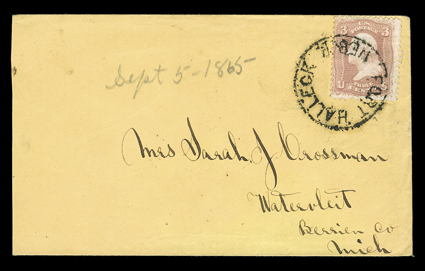 3 3
FORT HALLECK
NEB.R.
Sept 5-1865
Mrs Sarah J Crossman
Watervleit
Berrien Co
Mich